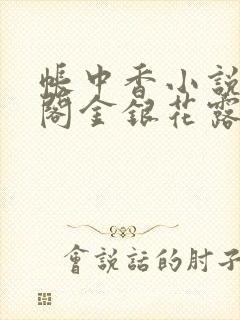 帳中香小說
閣金銀花露
會説話的肘子